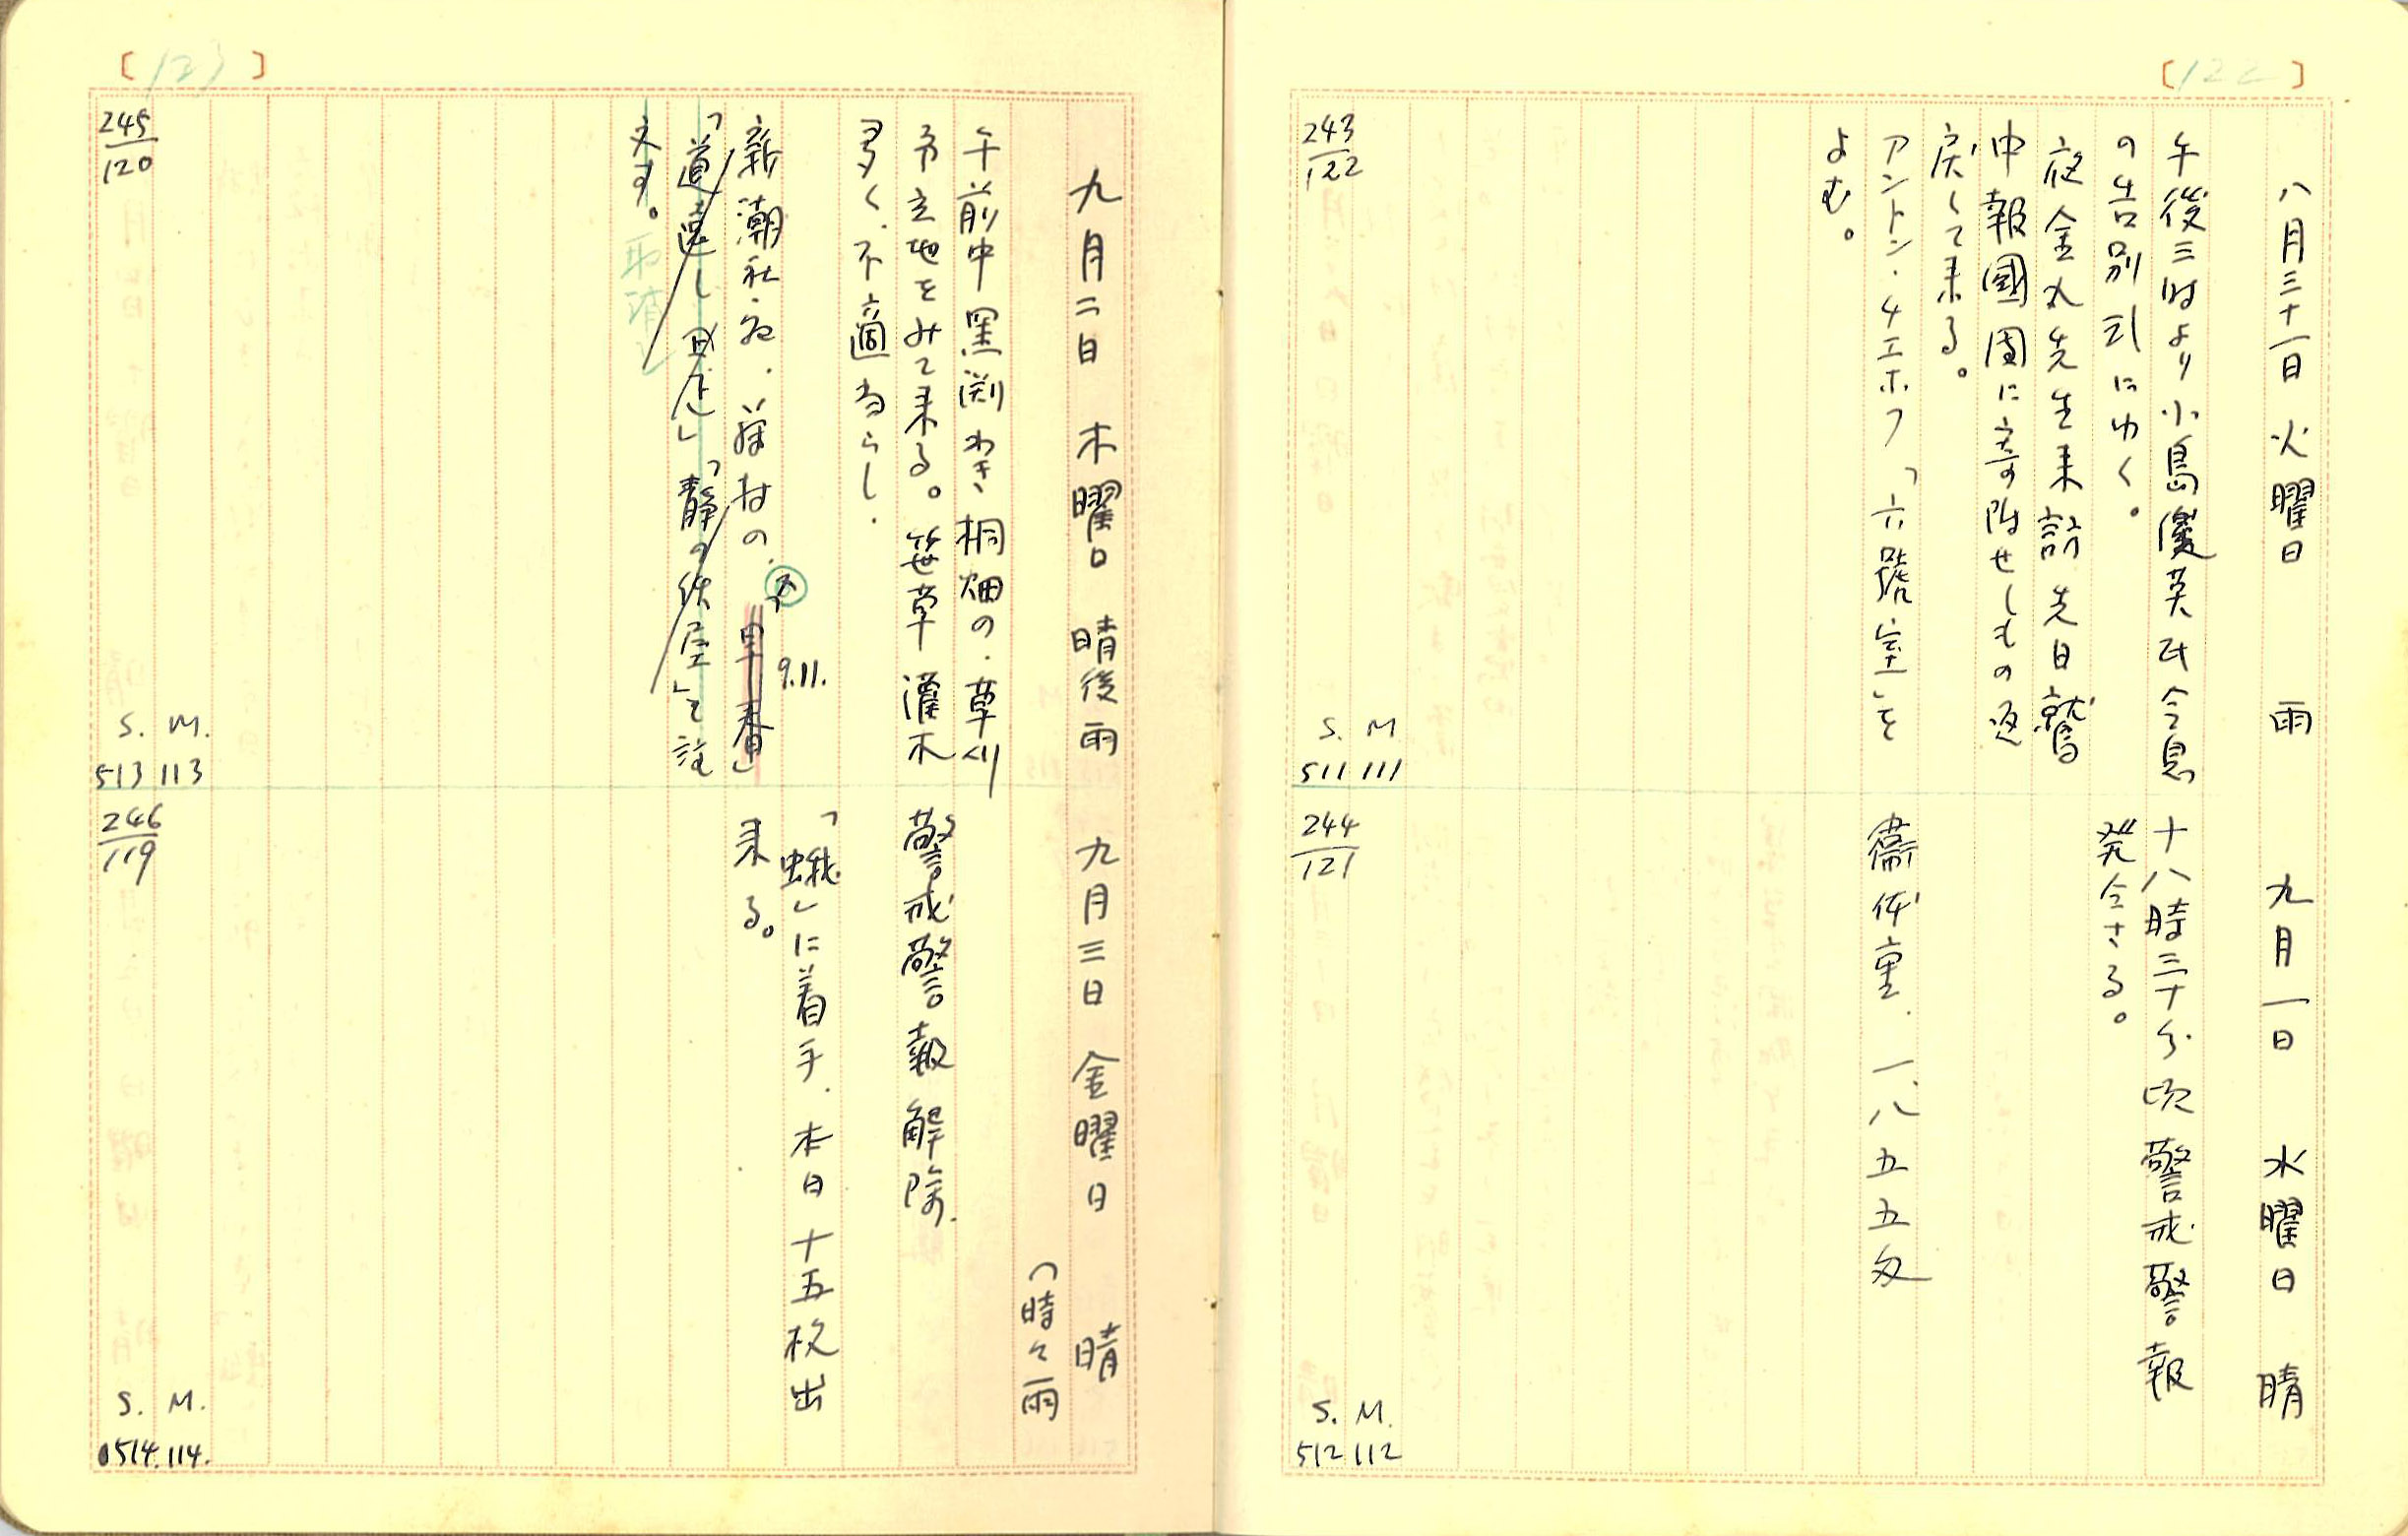 [122]
八月三十一日 火曜日 雨
午後三時より小島慶英氏令息
の告別式にゆく。
夜金丸先生来訪先日鷲
中報國団に寄附せしもの返
戻して来る。
アントン・チエホフ「六號室」を
よむ。
243
122
S. M
511 111
九月一日 水曜日 晴
十八時三十分頃警戒警報
発令さる。
衞体重.一、八五五匁
244
121
S. M.
512 112
[123]
九月二日 木曜日 晴後雨
午前中黑渕わき桐畑の.草刈
予定地をみて来る。笹草灌木
多く、不適当らし.
新潮社宛.藤村の.「早春」
9.11.
「道遠し」「静の伏屋」を註
文す。取消し
245
120
S. M.
513 113
九月三日 金曜日 晴
(時々雨
警戒警報解除.
「蛾」に着手.本日十五枚出
来る。
246
119
S. M.
514.114.